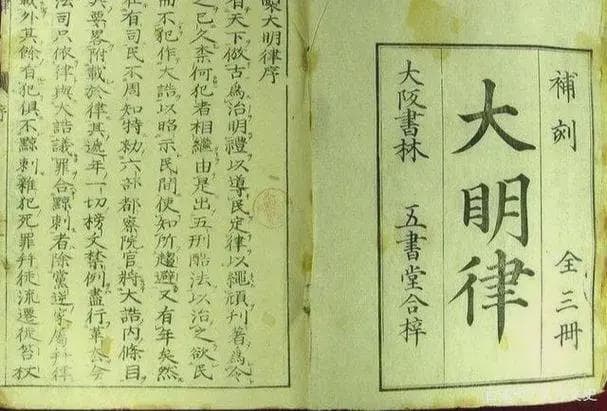 補刻 全三冊
大明律
大阪書林 五書堂合梓
製大明律序
有天下倣古為治明禮以導民定律以繩頑刊著為令
之已久柰何犯者相繼由是出五刑酷法以治之欲民
而不犯作大誥以昭示民間使知所趨避又有年矣然
在有司民不周知特勅六部都察院官將大誥内條目
其要畧附載於律其遞年一切榜文禁例盡行革去今
法司只依律與大誥議罪合黥刺者除黨逆家屬幷律
載外其餘有犯俱不黥刺雜犯死罪幷徒流遷徙笞杖
序